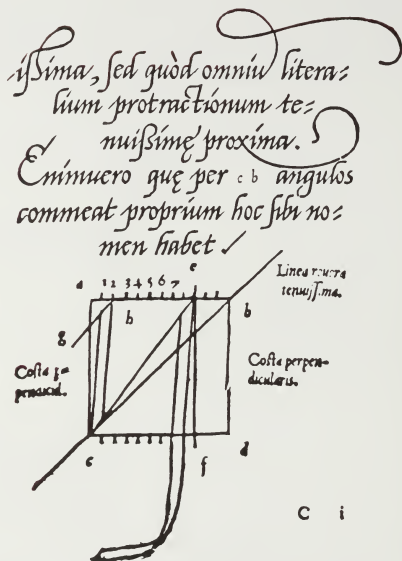 ißima, sed quòd omniũ litera=
lium protractionum te=
nuißimę proxima.
Enimuero quę per c b angulos
commeat proprium hoc sibi no=
men habet
e
Linea reuera
tenuißima.
a 1 2 3 4 5 6 7
h b
g
Costa perpendicularis.
c f d
C i